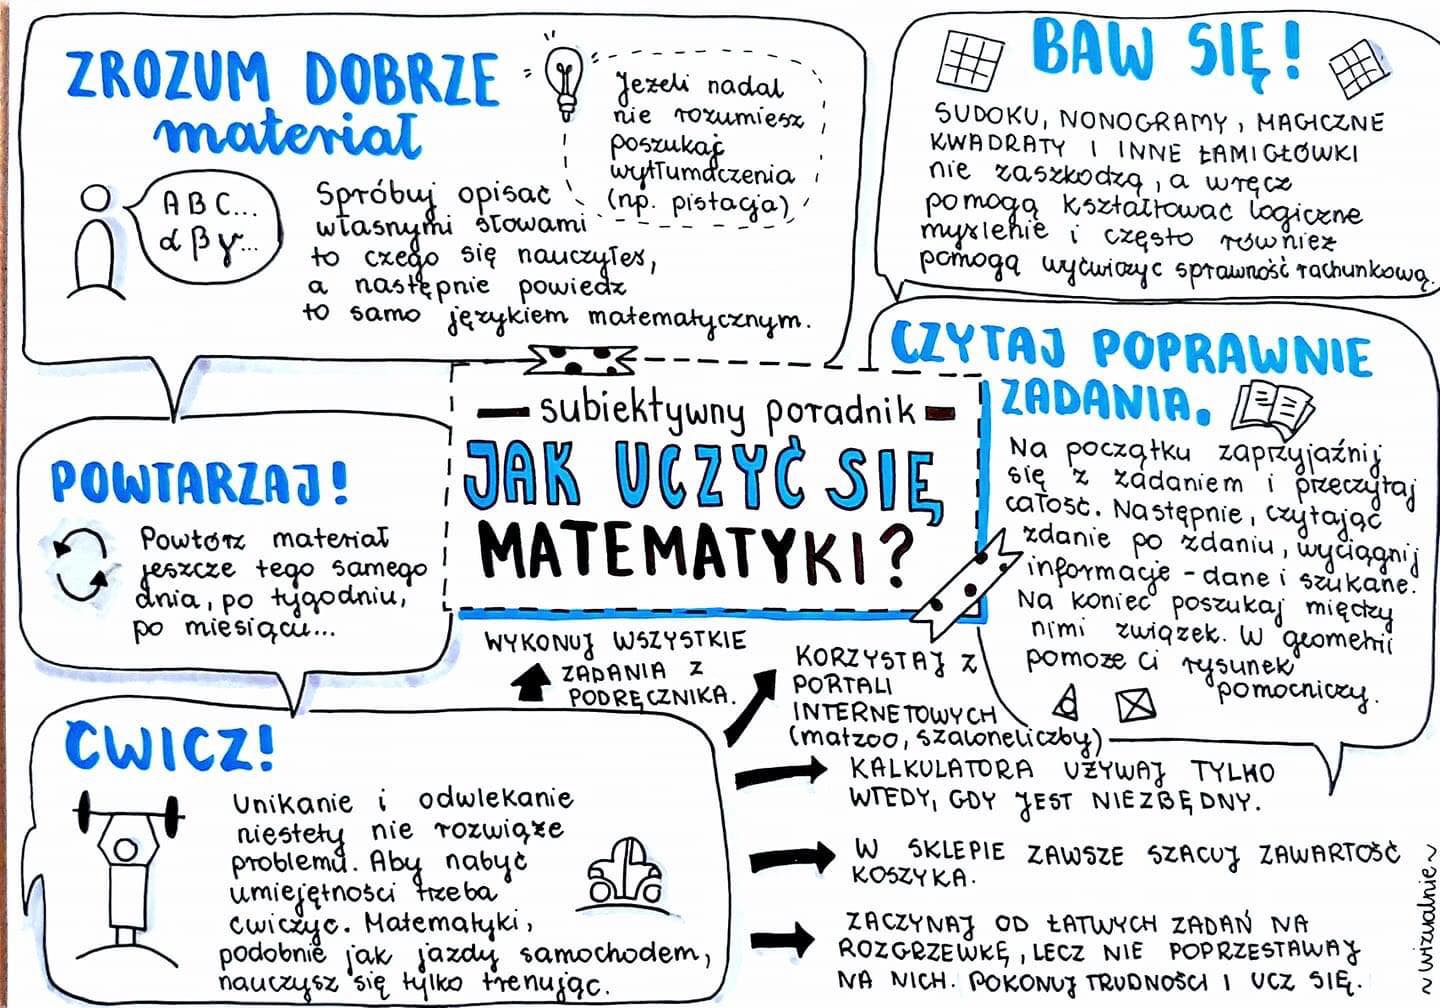 ZROZUM DOBRZE
materiał
Jeżeli nadal
nie rozumiesz
poszukaj
wytłumaczenia
(np. pistacja)
A B C...
α β γ...
Spróbuj opisać
własnymi słowami
to czego się nauczyłeś,
a następnie powiedz
to samo językiem matematycznym.
BAW SIĘ!
SUDOKU, NONOGRAMY, MAGICZNE
KWADRATY I INNE ŁAMIGŁÓWKI
nie zaszkodzą, a wręcz
pomogą kształtować logiczne
myślenie i często również
pomogą wyćwiczyć sprawność rachunkową.
- subiektywny poradnik -
JAK UCZYĆ SIĘ
MATEMATYKI?
CZYTAJ POPRAWNIE
ZADANIA.
Na początku zaprzyjaźnij
się z zadaniem i przeczytaj
całość. Następnie, czytając
zdanie po zdaniu, wyciągnij
informacje - dane i szukane.
Na koniec poszukaj między
nimi związek. W geometrii
pomoże Ci rysunek
pomocniczy.
POWTARZAJ!
Powtórz materiał
jeszcze tego samego
dnia, po tygodniu,
po miesiącu...
ĆWICZ!
Unikanie i odwlekanie
niestety nie rozwiąże
problemu. Aby nabyć
umiejętności trzeba
ćwiczyć. Matematyki,
podobnie jak jazdy samochodem,
nauczysz się tylko trenując.
WYKONUJ WSZYSTKIE
ZADANIA Z
PODRĘCZNIKA.
KORZYSTAJ Z
PORTALI
INTERNETOWYCH
(matzoo, szaloneliczby)
KALKULATORA UŻYWAJ TYLKO
WTEDY, GDY JEST NIEZBĘDNY.
W SKLEPIE ZAWSZE SZACUJ ZAWARTOŚĆ
KOSZYKA.
ZACZYNAJ OD ŁATWYCH ZADAŃ NA
ROZGRZEWKĘ, LECZ NIE POPRZESTAWAJ
NA NICH. POKONUJ TRUDNOŚCI I UCZ SIĘ.
~ wizualnie ~